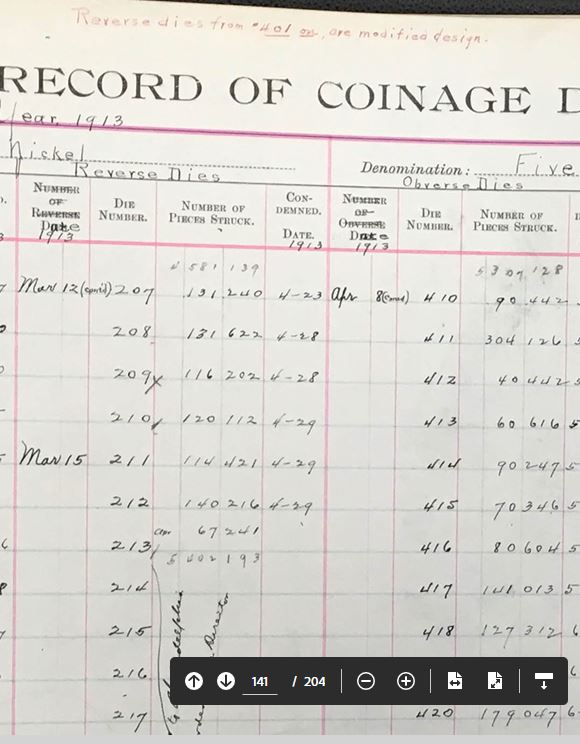 Reverse dies from #401 on, are modified design.
RECORD OF COINAGE D
Year 1913
Nickel Denomination: Five
Reverse Dies Obverse Dies
NUMBER OF REVERSE Date 1913 DIE NUMBER. NUMBER OF PIECES STRUCK. CON-DEMNED. DATE. 1913 NUMBER OF OBVERSE Date 1913 DIE NUMBER. NUMBER OF PIECES STRUCK.
4 581 139 5 307 128
Mar 12 (cont'd) 207 131 240 4-23 Apr 8 (Contd) 410 90 442
208 131 622 4-28 411 304 126 5
209x 116 202 4-28 412 40 442 5
210 120 112 4-29 413 60 616 5
Mar 15 211 114 421 4-29 414 90 247 5
212 140 216 4-29 415 70 346 5
67 241
213 416 80 604 5
5 402 193
214 417 141 013 5
215 418 127 312 6
216
217 420 179 047 6
Director
141 / 204